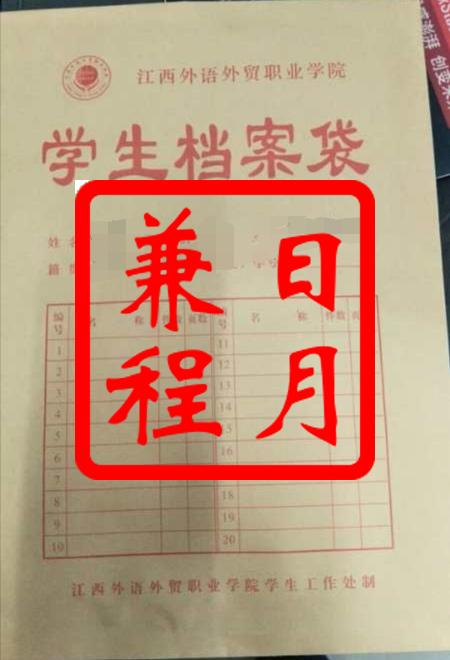 江西外语外贸职业学院
学生档案袋
姓名
籍
编号 名 称 件数 页数 编号 名 称 件数 页
1 11
2 12
3 13
4 14
5 15
6 16
7
8 18
9 19
10 20
江西外语外贸职业学院学生工作处制
日月兼程
澎湃 创